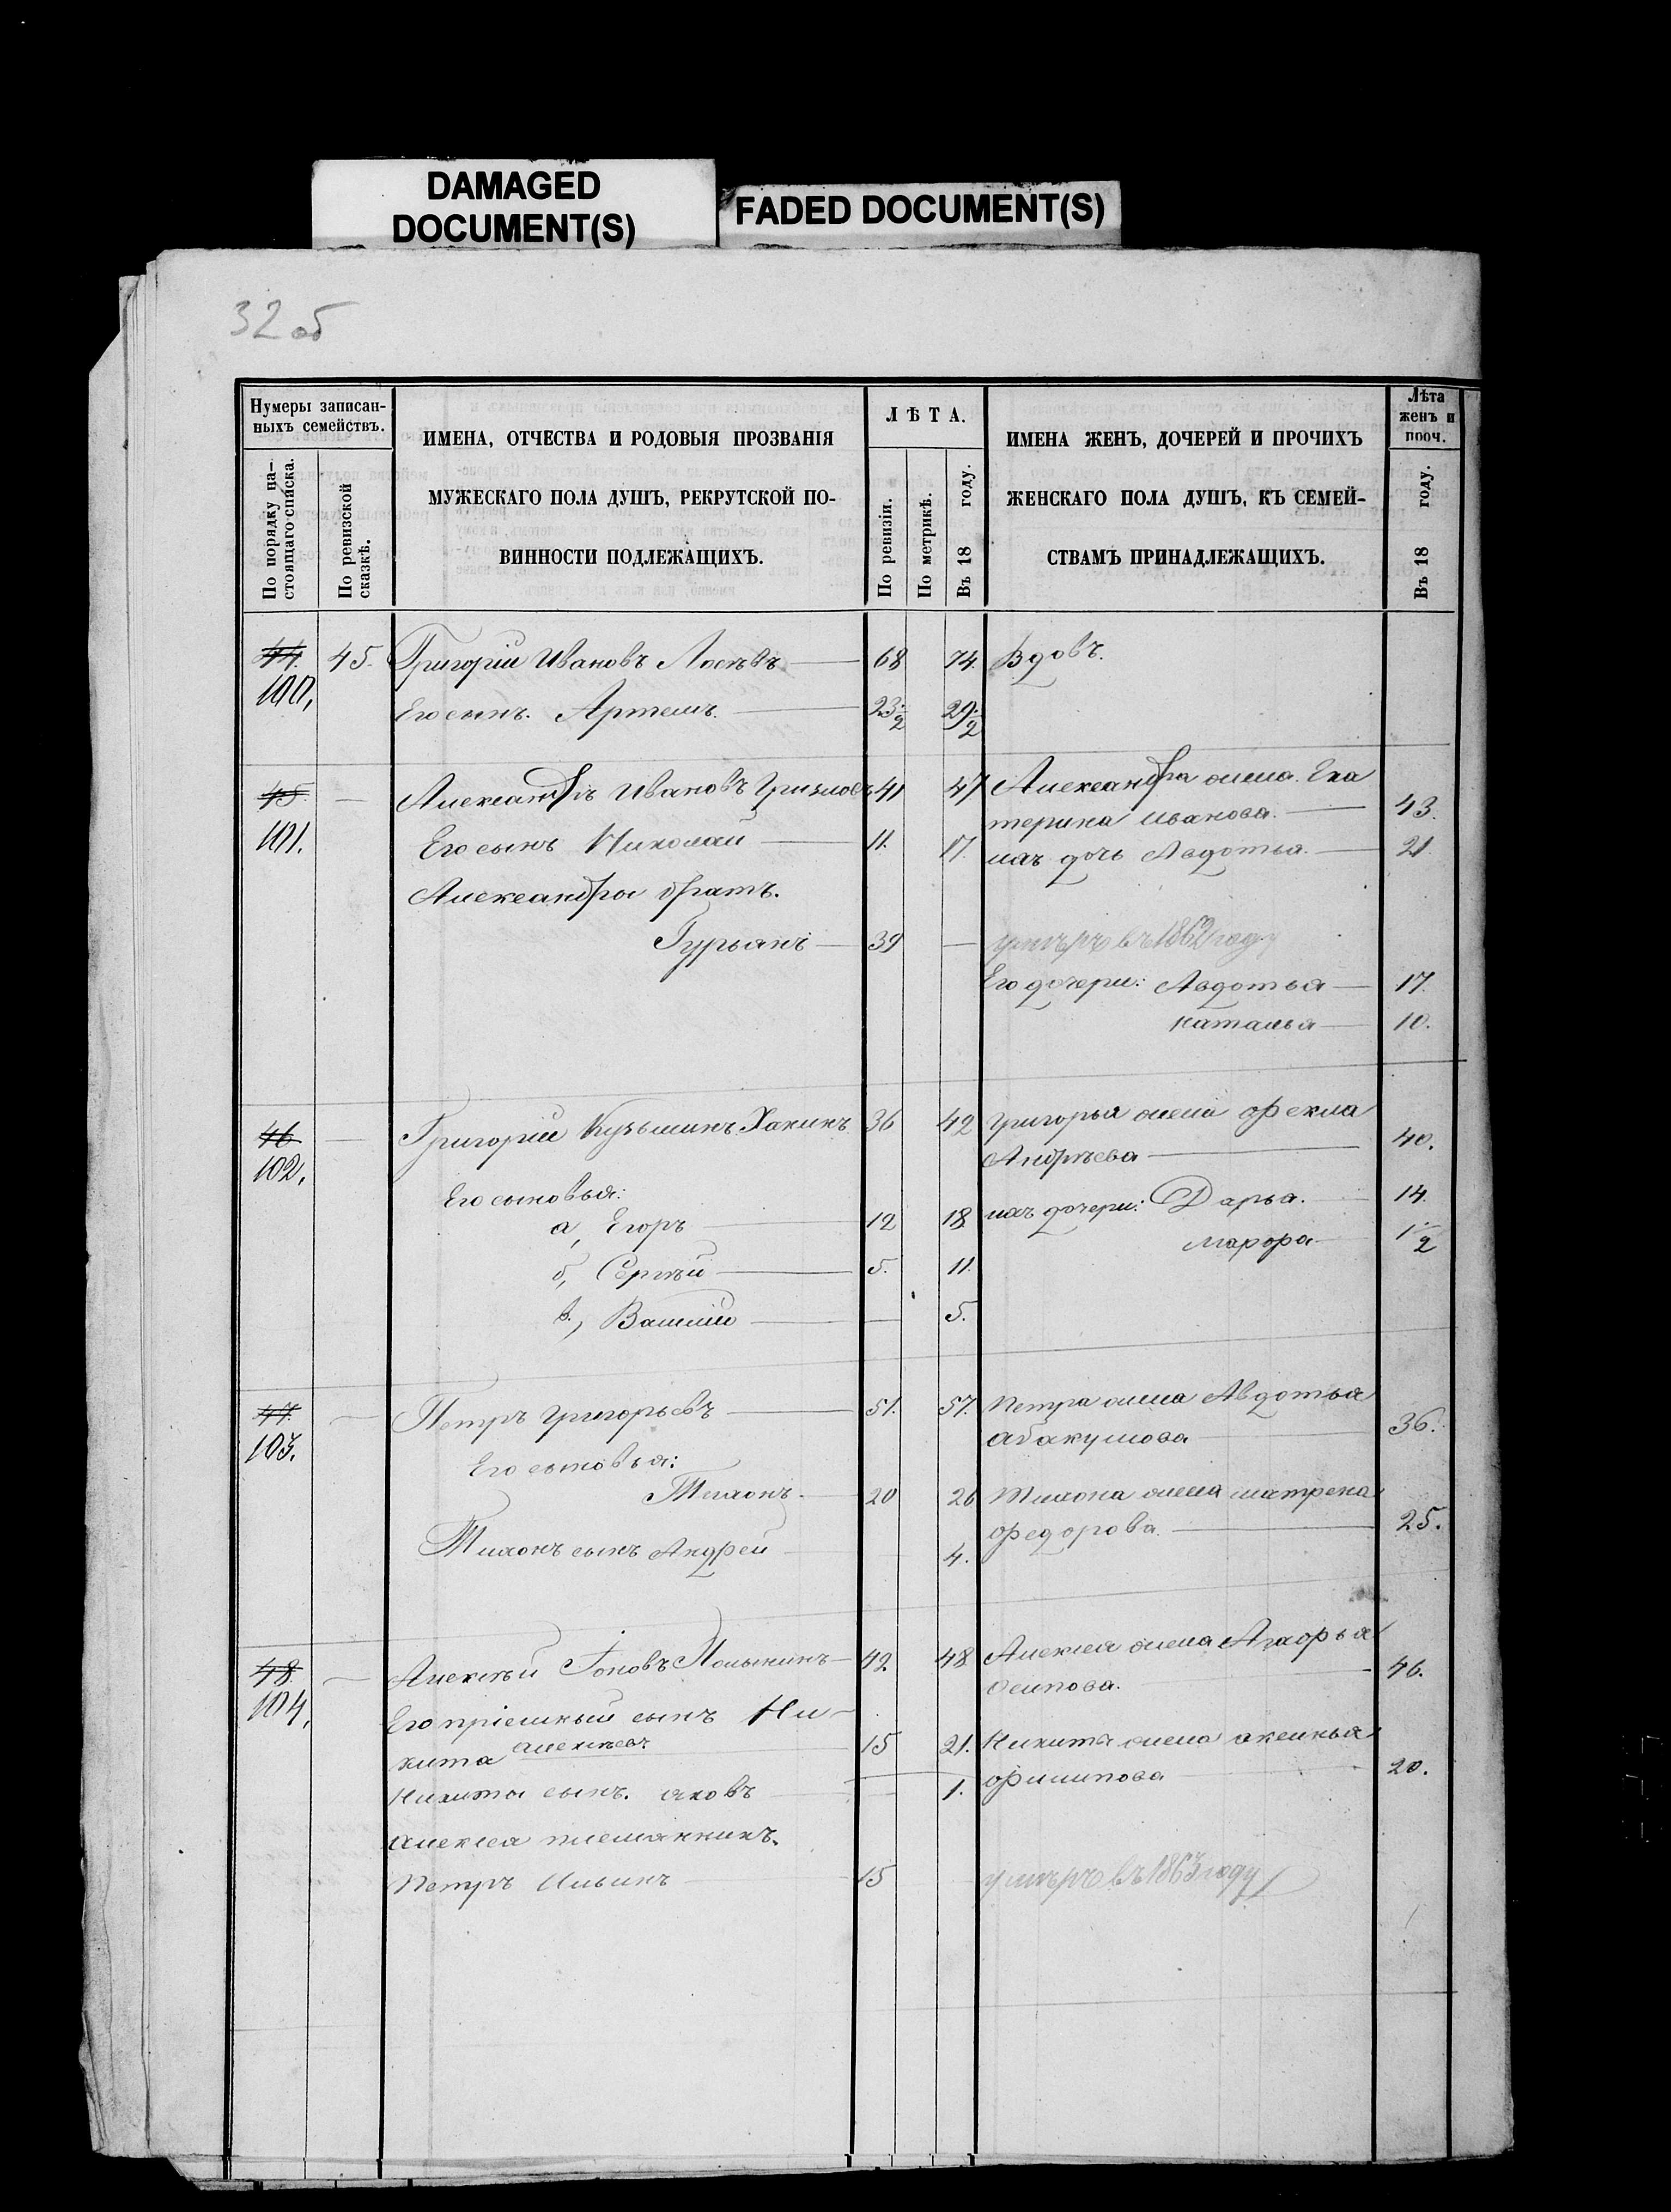 DAMAGED
DOCUMENT(S)
FADED DOCUMENT(S)
32 об
Нумеры записан-
ныхъ семействъ.
По порядку на-
стоящаго списка.
По ревизской
сказкѣ.
ИМЕНА, ОТЧЕСТВА И РОДОВЫЯ ПРОЗВАНІЯ
МУЖЕСКАГО ПОЛА ДУШЪ, РЕКРУТСКОЙ ПО-
ВИННОСТИ ПОДЛЕЖАЩИХЪ.
ЛѢТА.
По ревизіи.
По метрикѣ.
Въ 18 году.
ИМЕНА ЖЕНЪ, ДОЧЕРЕЙ И ПРОЧИХЪ
ЖЕНСКАГО ПОЛА ДУШЪ, КЪ СЕМЕЙ-
СТВАМЪ ПРИНАДЛЕЖАЩИХЪ.
Лѣта
женъ и
проч.
Въ 18 году.
44. 45. Григорій Ивановъ 68 74. Вдовъ.
100,
Его сынъ. Артемъ. 23 1/2 29 1/2
45. — Александръ Ивановъ 41 47 Александра жена Ека
терина Иванова. 43.
101. Его сынъ Николай 11. 17. ихъ дочь Авдотья. 21
Александра братъ.
Гурьянъ — 39 — умеръ въ 1862 году
Его дочери: Авдотья — 17.
Наталья — 10.
46 — Григорій Кузьминъ Ханинъ 36 42 Григорья жена Фекла
102. Андреева 40.
Его сыновья: ихъ дочери: Дарья. 14.
а, Егоръ 12 18
Марфа 1 1/2
б, Сергѣй 5. 11.
в, Василій — 5.
47. — Петръ Григорьевъ 51. 57. Петра жена Авдотья
103. Абакумова 36.
Его сыновья:
Тихонъ. 20 26 Тихона жена Матрена
Федорова. 25.
Тихонъ сынъ Андрей 4.
48. — Алексѣй Іоновъ 42. 48 Алексея жена
104, Осипова. 46.
Его пріемный сынъ Ни-
кита Алексѣевъ 15 21. Никита жена Аксинья
Филипова 20.
Никиты сынъ. Яковъ — 1.
Алексея племянникъ.
Петръ Ильинъ 15 умеръ въ 1863 году